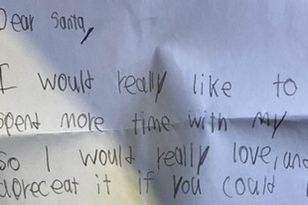 Dear Santa,
I would really like to
spent more time with my
so I would really love, and
apreceat it if you could